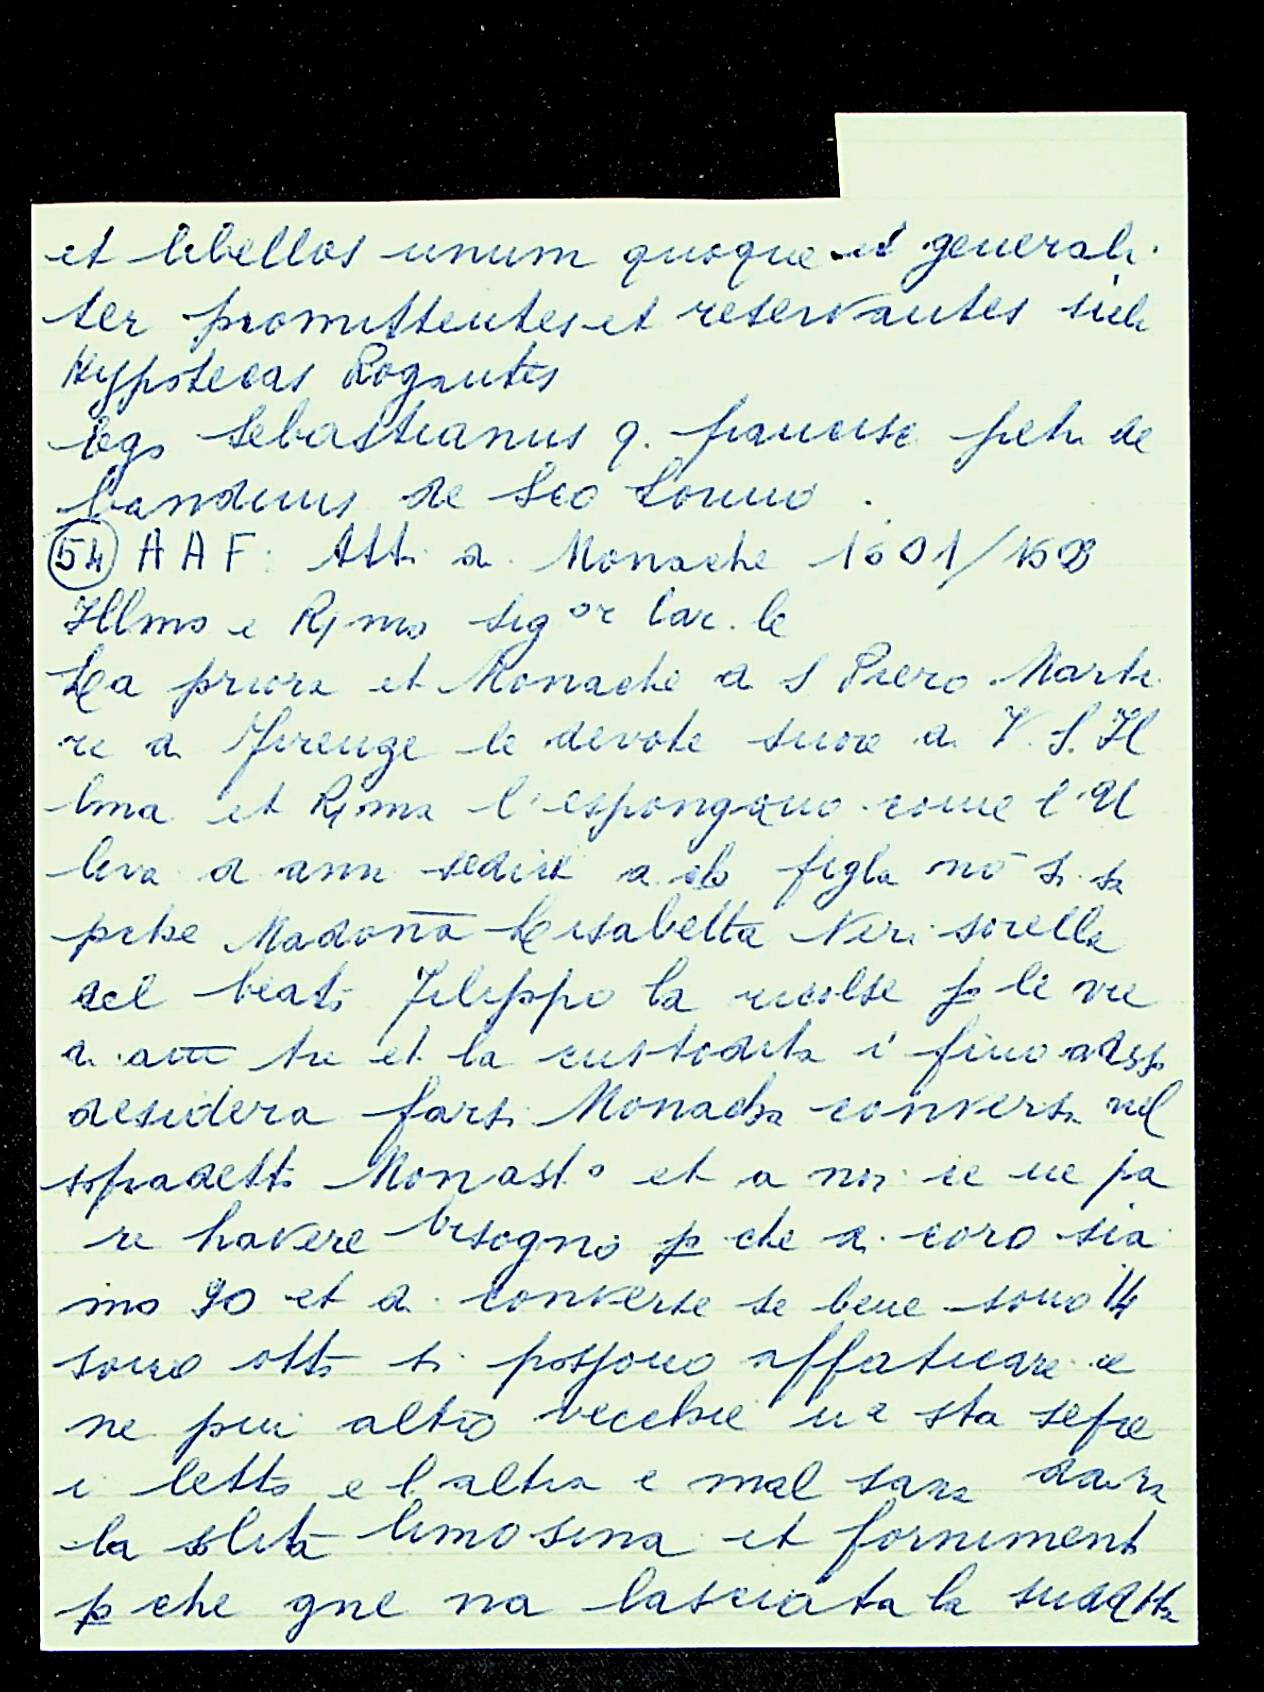 et libellos unum quoque et generali
ter promittentes et reservantes sub
Hypotecas Rogantes
Ego Sebastianus q. francisc petri de
bandinis de Sco Lonino.
(54) AAF: Atti di Monache 1601/1603
Illmo e Rmo Sigor
La priora et Monache di S Piero Marti
re di Firenze le devote suore di V.S. Il
lma et Rma l'espongano come l'U
liva di anni sedici di cb figla nō si sa
pche Madonā Lisabetta Neri sorella
del beato Filippo la ricolse p le vie
di anni tre et la custodita i fino adesso
desidera farsi Monacha conversa nel
sopradetto Monasto et a noi ce ne pa
re havere bisogno p che di coro sia
mo 90 et di converse se bene sono 14
sono otto si possono affaticare e
ne piu altro vecchie una sta sepre
i letto e l altra e mal sana
la solita limosina et forniment
p che gne na lasciata la sudditta